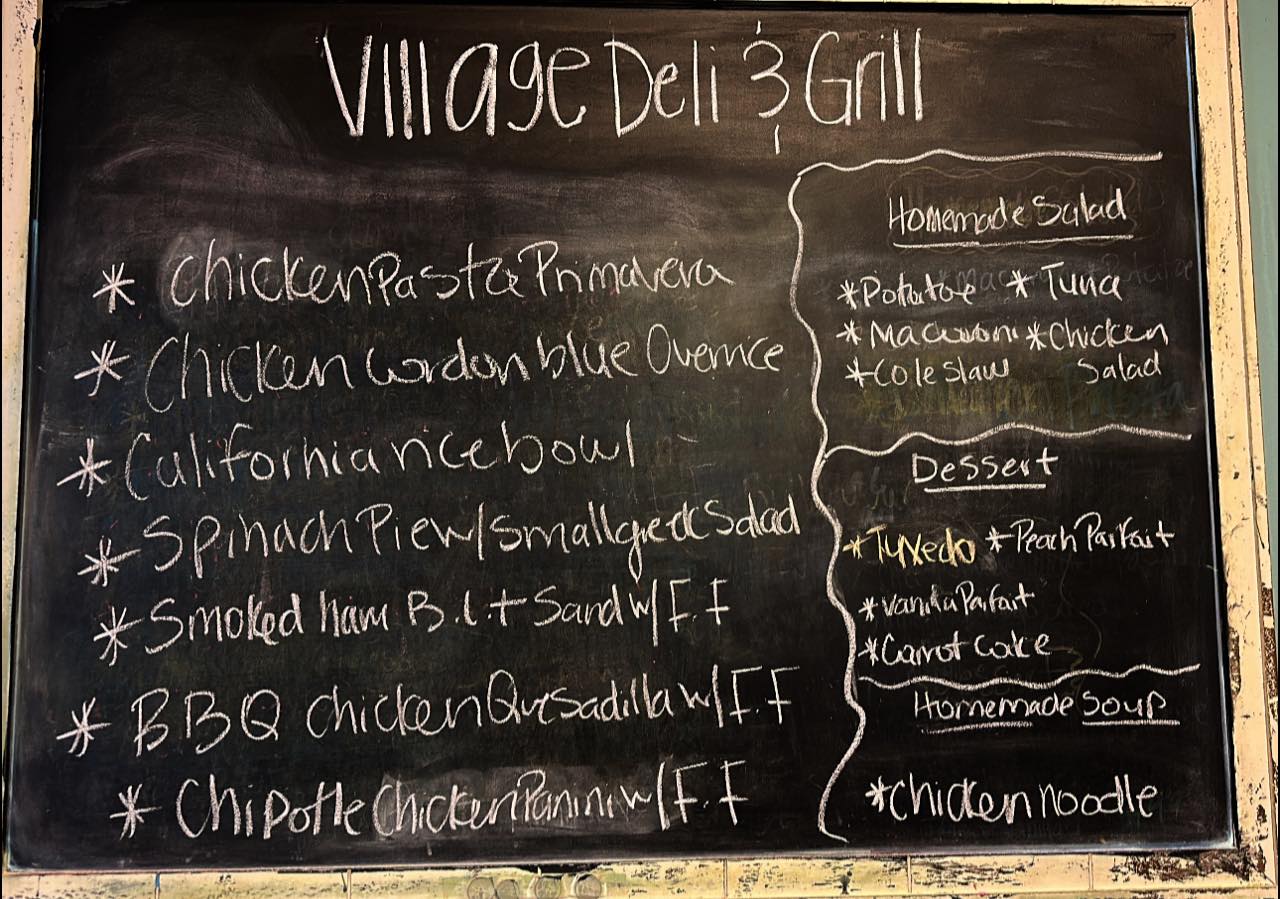 Village Deli & Grill
* Chicken Pasta Primavera
* Chicken Cordon blue Over rice
* California rice bowl
* Spinach Pie w/ small greek Salad
* Smoked ham B.L.t Sand w/ F.F
* BBQ chicken Quesadilla w/ F.F
* Chipotle Chicken Panini w/ F.F
Homemade Salad
* Potatoe * Tuna
* Macaroni * Chicken
* Cole Slaw Salad
Dessert
* Tuxedo * Peach Parfait
* Vanilla Parfait
* Carrot Cake
Homemade Soup
* Chicken noodle